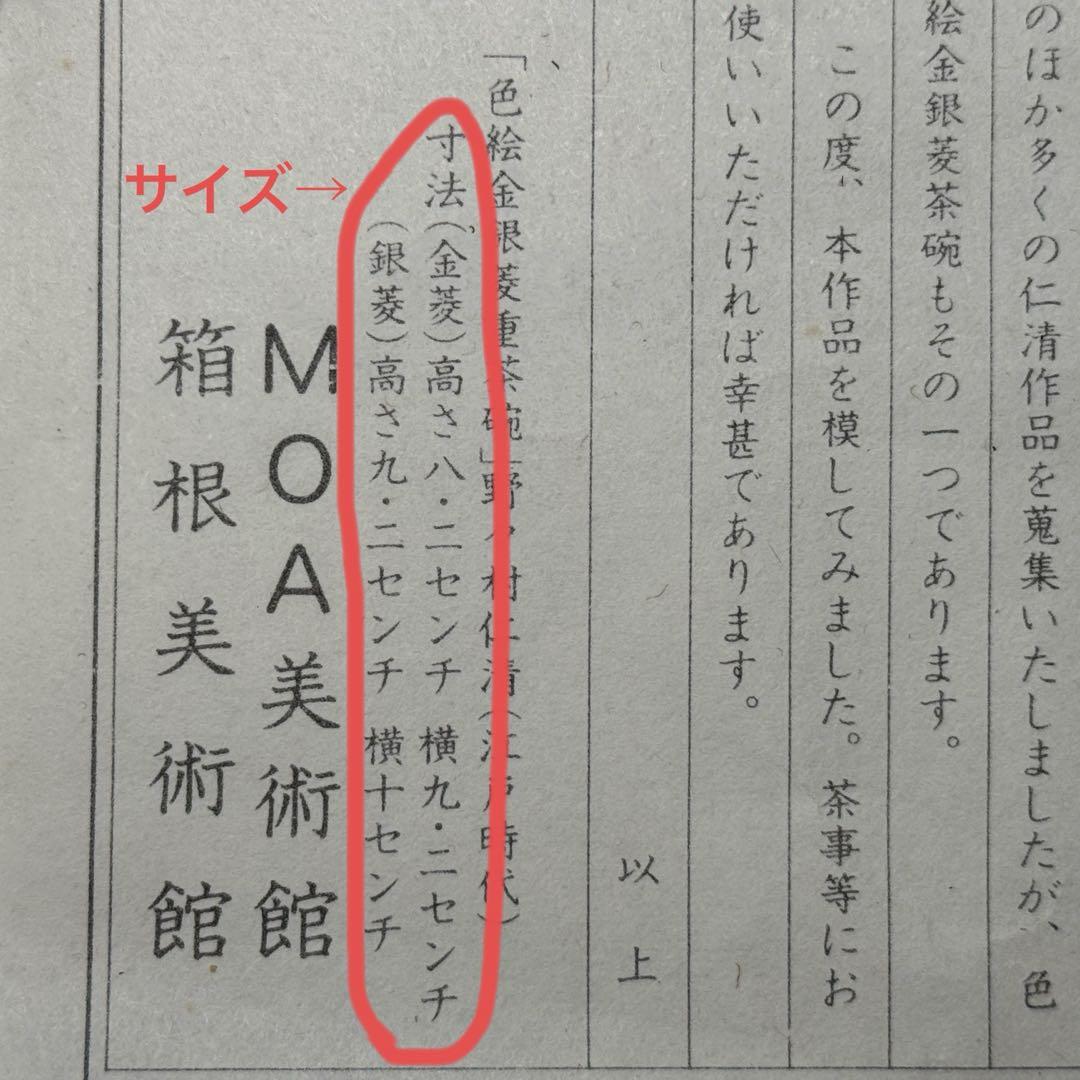 のほか多くの仁清作品を蒐集いたしましたが、色
絵金銀菱茶碗もその一つであります。
この度、本作品を模してみました。茶事等にお
使いいただければ幸甚であります。
以上
「色絵金銀菱重茶碗」野々村仁清（江戸時代）
寸法（金菱）高さ八・二センチ 横九・二センチ
（銀菱）高さ九・二センチ 横十センチ
サイズ→
MOA美術館
箱根美術館